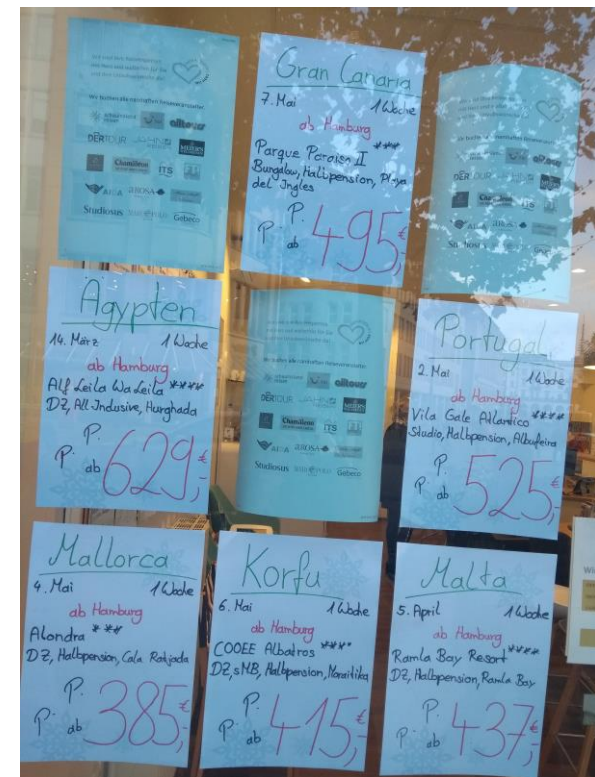 Wir buchen alle namhaften Reiseveranstalter:
alltours
DERTOUR
MEIERS
Chamäleon
ITS
ATCA
AROSA
Studiosus
Gebeco
Gran Canaria
7. Mai 1 Woche
ab Hamburg
Parque Paraiso II ***
Bungalow, Halbpension, Playa
del Ingles
P.
P. ab 495,-€
DERTOUR
Chamäleon
ITS
AROSA
Studiosus
Gebeco
Ägypten
14. März 1 Woche
ab Hamburg
Alf Leila Wa Leila ****
DZ, All-Inclusive, Hurghada
P.
P. ab 629,-€
Wir buchen alle namhaften Reiseveranstalter:
alltours
DERTOUR
MEIERS
Chamäleon
ITS
AROSA
Studiosus
Gebeco
Portugal
2. Mai 1 Woche
ab Hamburg
Vila Gale Atlantico ****
Studio, Halbpension, Albufeira
P.
P. ab 525,-€
Mallorca
4. Mai 1 Woche
ab Hamburg
Alondra ***
DZ, Halbpension, Cala Ratjada
P.
P. ab 385,-€
Korfu
6. Mai 1 Woche
ab Hamburg
COOEE Albatros ****
DZ, sMB, Halbpension, Moraitika
P.
P. ab 415,-€
Malta
5. April 1 Woche
ab Hamburg
Ramla Bay Resort ****
DZ, Halbpension, Ramla Bay
P.
P. ab 437,-€
Wi